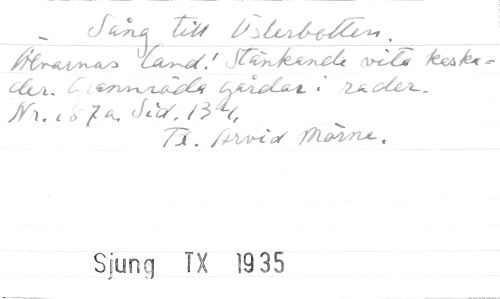 Sång till Österbotten.
Älvarnas land! Stänkande vita kaska-
der. Grannröda gårdar i rader.
Nr. 187a. Sid. 134.
Tx. Arvid Mörne.
Sjung TX 1935